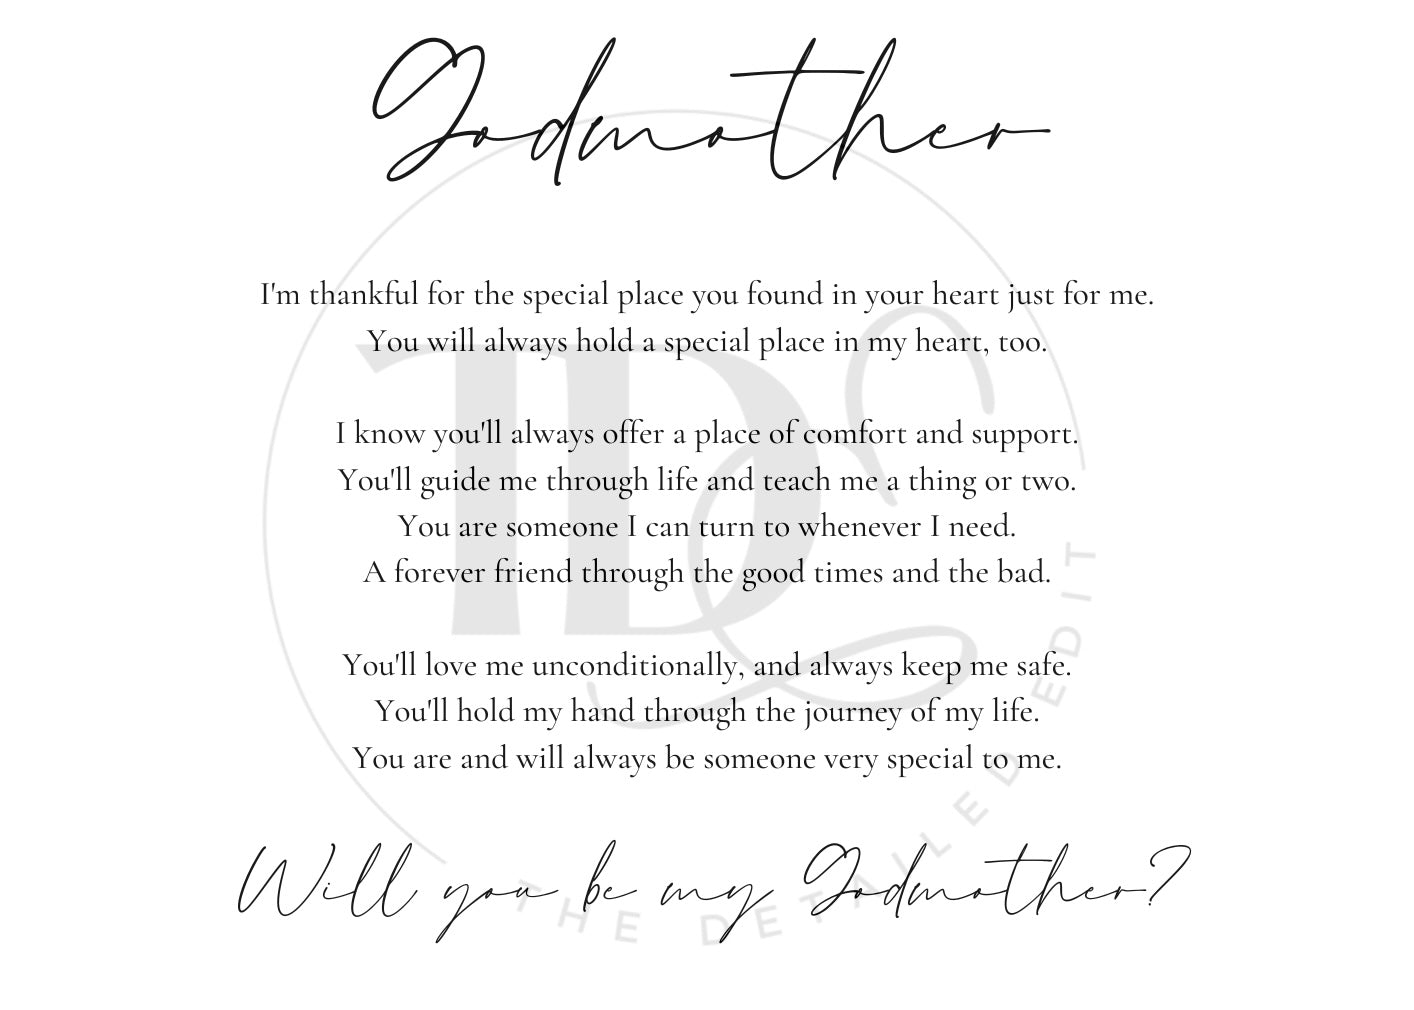 Godmother
I'm thankful for the special place you found in your heart just for me.
You will always hold a special place in my heart, too.
I know you'll always offer a place of comfort and support.
You'll guide me through life and teach me a thing or two.
You are someone I can turn to whenever I need.
A forever friend through the good times and the bad.
You'll love me unconditionally, and always keep me safe.
You'll hold my hand through the journey of my life.
You are and will always be someone very special to me.
Will you be my Godmother?
TDE
THE DETAILED EDIT